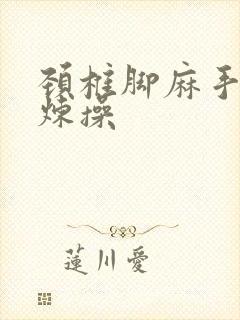 頚椎脚麻手
炼操
蓮川愛